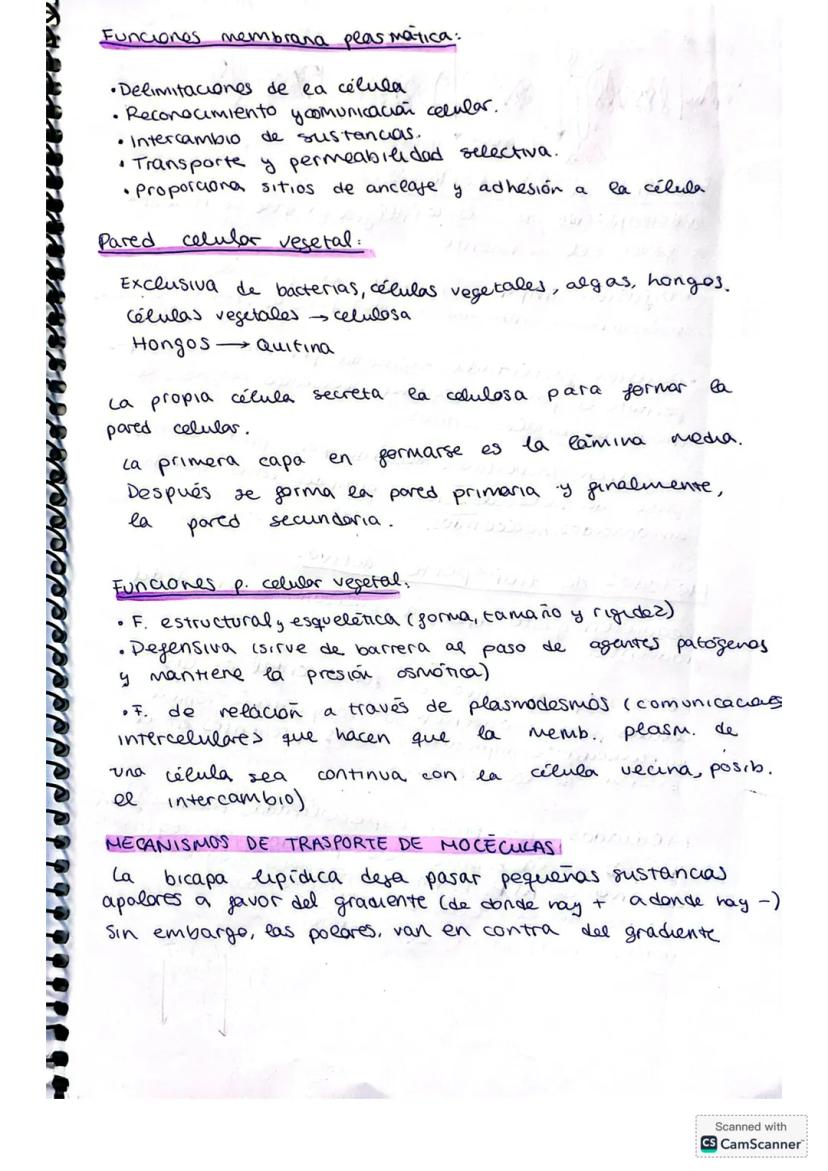 Funciones membrana plasmática:
• Delimitaciones de la célula
• Reconocimiento y comunicación celular.
• Intercambio de sustancias.
• Transporte y permeabilidad selectiva.
• Proporciona sitios de anclaje y adhesión a la célula
Pared celular vegetal:
Exclusiva de bacterias, células vegetales, algas, hongos.
Células vegetales → celulosa
Hongos → Quitina
La propia célula secreta la celulosa para formar la
pared celular.
La primera capa en formarse es la lámina media.
Después se forma la pared primaria y finalmente,
la pared secundaria.
Funciones p. celular vegetal:
• F. estructural y esquelética (forma, tamaño y rigidez)
• Defensiva (sirve de barrera al paso de agentes patógenos
y mantiene la presión osmótica)
• F. de relación a través de plasmodesmos (comunicaciones
intercelulares que hacen que la memb. plasm. de
una célula sea continua con la célula vecina, posib.
el intercambio)
MECANISMOS DE TRASPORTE DE MOCÉCULAS
La bicapa lipídica deja pasar pequeñas sustancias
apolares a favor del gradiente (de donde hay + a donde hay -)
Sin embargo, las polares, van en contra del gradiente
Scanned with
CS CamScanner